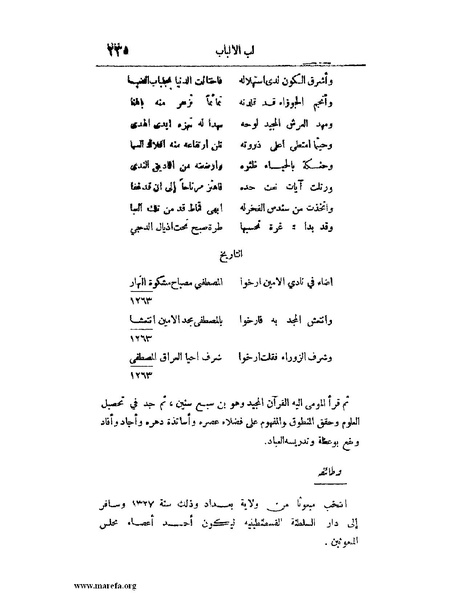 لب الالباب ٢٣٥
وأشرق الكون لدى استهلاله فاختالت الدنيا بجلباب الضيا
وأنجم الجوزاء قد قلدنه تمائماً تزهر منه بالهنا
ومهد العرش المجيد لوحه مهدا له تهزه ايدي الهدى
وحيثما امتطى أعلى ذروته
وحنكته بالحياء ظئره وارضعته من افاويق الندى
ورتلت آيات نعت حده فاهتز مرتاحاً إلى ان قد غفا
واتخذت من سندس الفخر له ابهى قماط قد من تلك
وقد بدا : غرة تحسبها طرة صبح تحت اذيال الدجى
التاريخ
اضاء في نادي الامين ارخوا المصطفي مصباح مشكوة النهار
١٢٦٣
وانتعش المجد به فارخوا بالمصطفى مجد الامين انتعشا
١٢٦٣
وشرف الزوراء فقلت ارخوا شرف احيا العراق المصطفي
١٢٦٣
ثم قرأ المومى اليه القرآن المجيد وهو بن سبع سنين ، ثم جد في تحصيل
العلوم وحقق المنطوق والمفهوم على فضلاء عصره وأساتذة دهره وأجاد وأفاد
ونفع بوعظه وتدريسه العباد.
وظائفه
انتخب مبعوثا من ولاية بغداد وذلك سنة ١٣٢٧ وسافر
إلى دار السلطنة القسطنطينيه ليكون أحد أعضاء مجلس
المبعوثين .
www.marefa.org